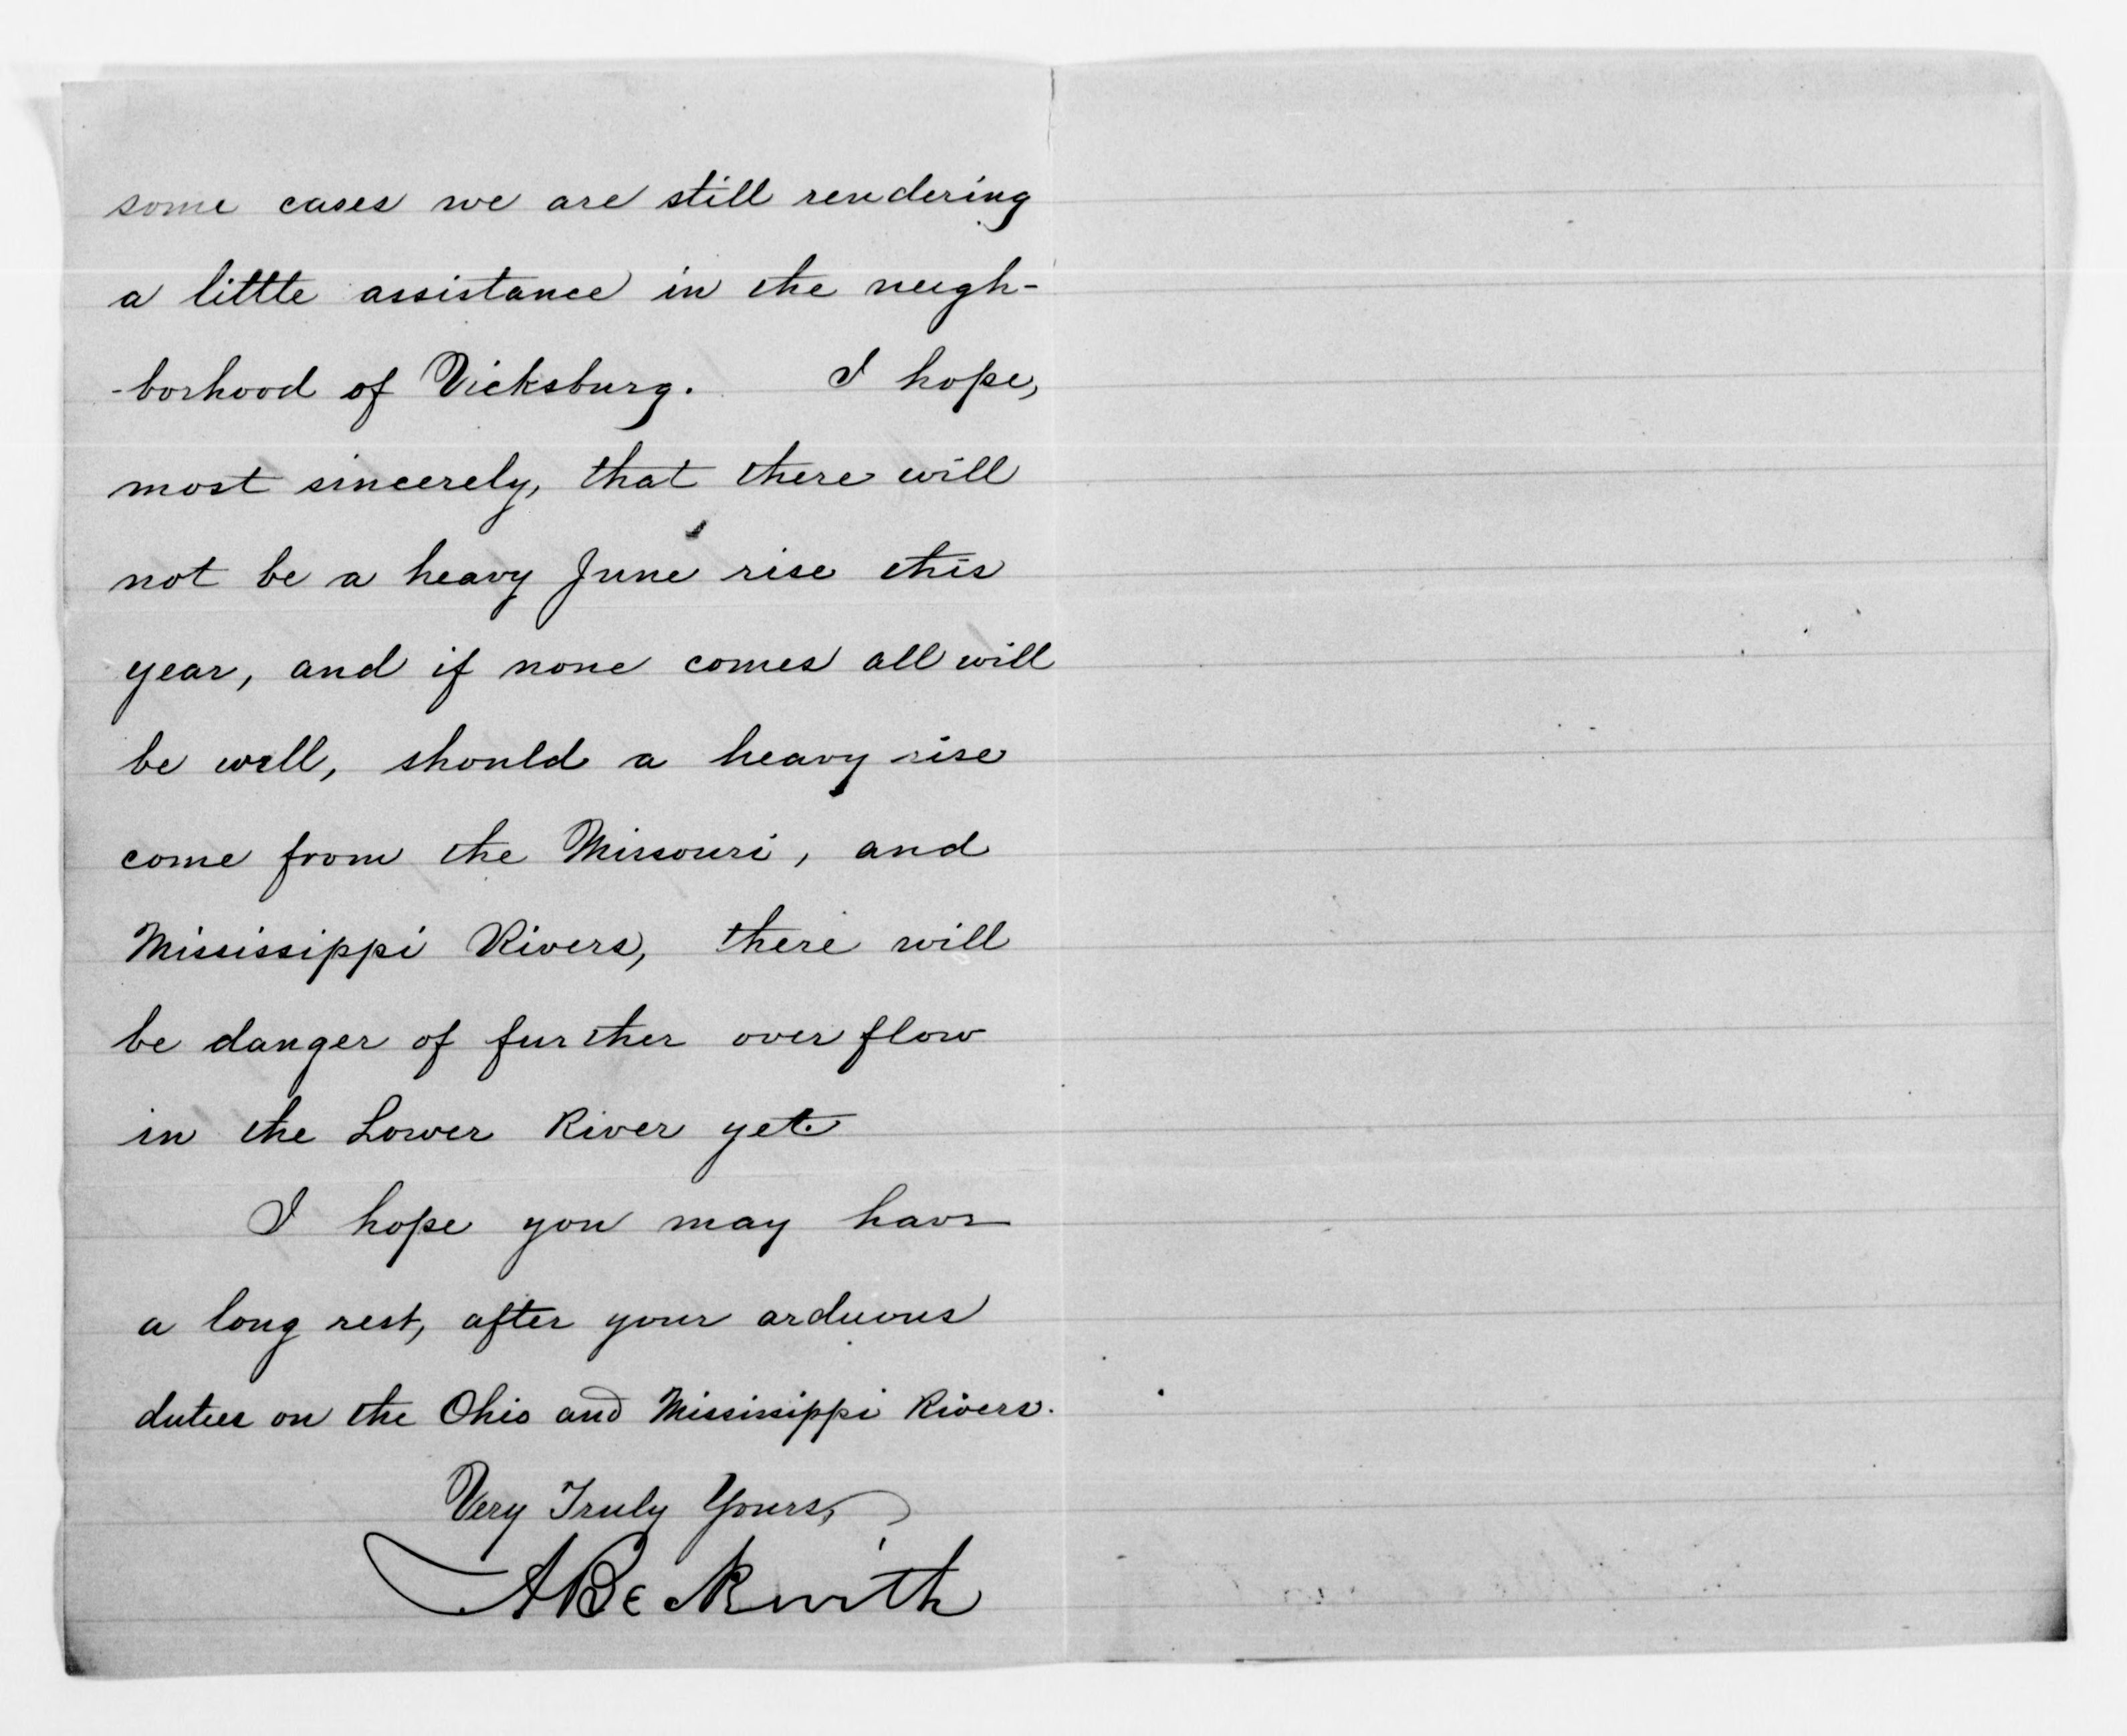 some cases we are still rendering
a little assistance in the neigh-
-borhood of Vicksburg. I hope,
most sincerely, that there will
not be a heavy June rise this
year, and if none comes all will
be well, should a heavy rise
come from the Missouri, and
Mississippi Rivers, there will
be danger of further over flow
in the Lower River yet.
I hope you may have
a long rest, after your arduous
duties on the Ohio and Mississippi Rivers.
Very Truly Yours,
A Beckwith